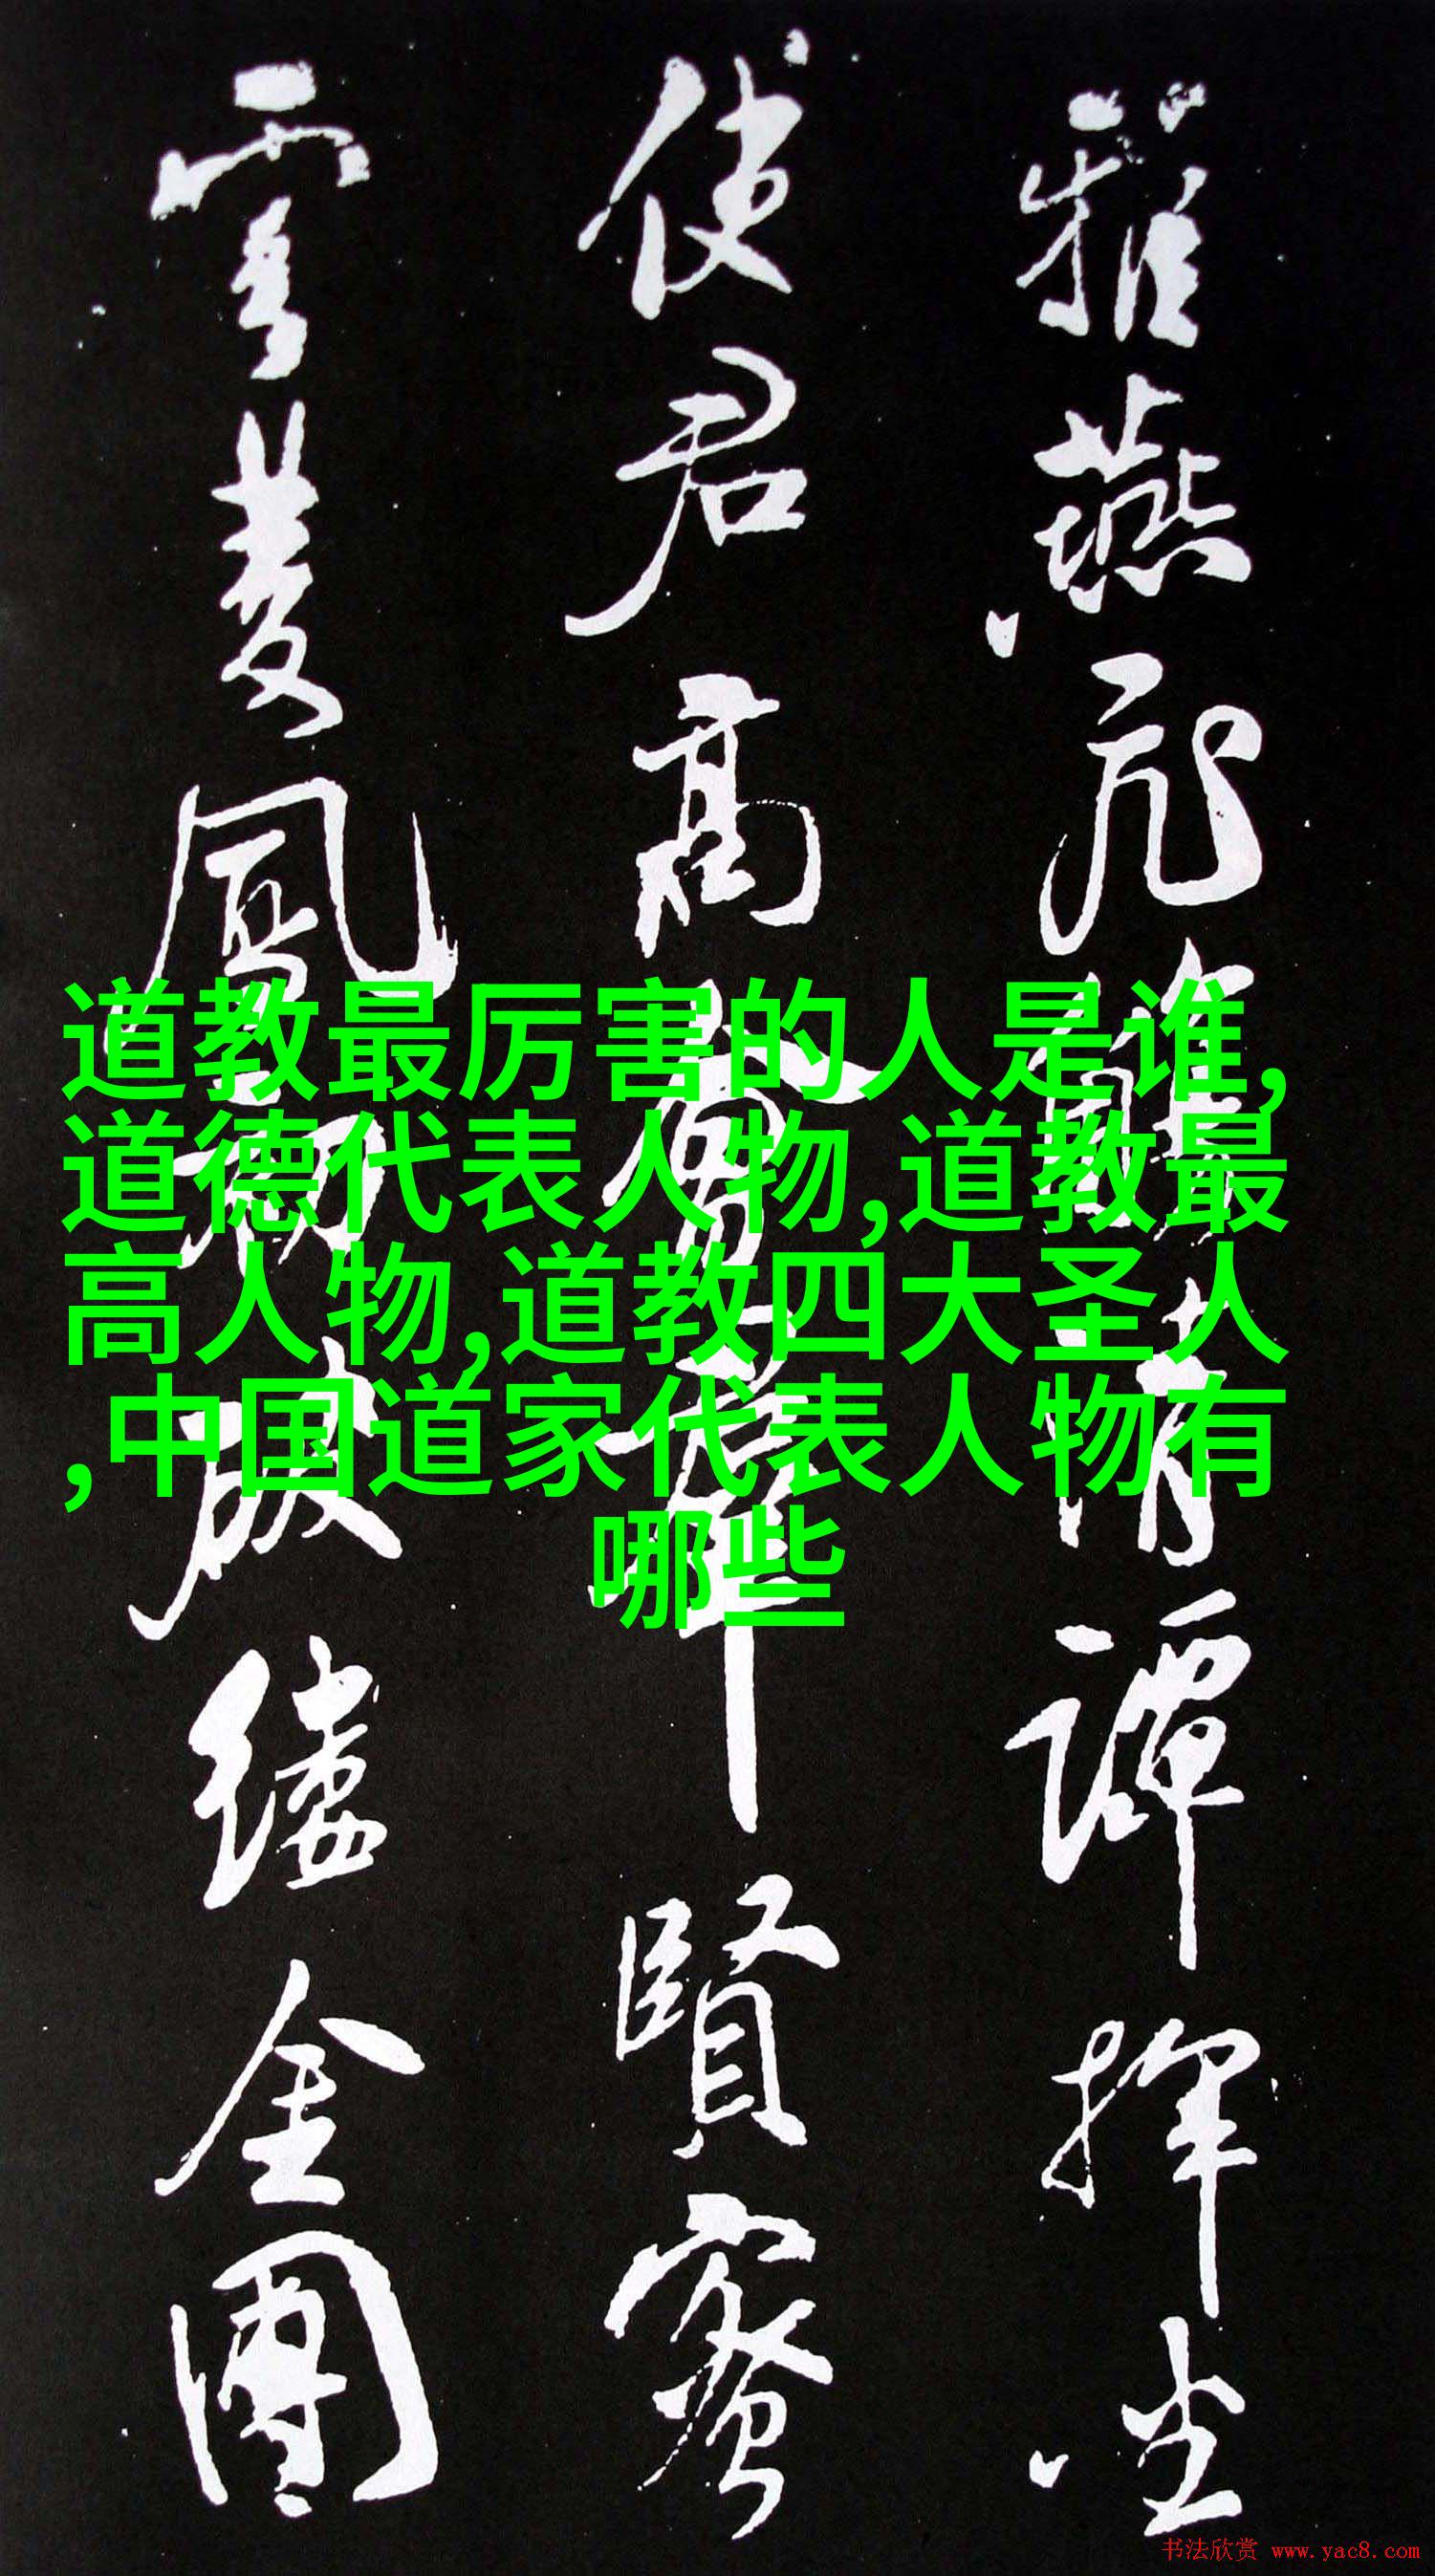 雅燕飛觴清譚揮坐
使君高會羣賢密
雲雙鳳初破縷金團
道教最厉害的人是谁,
道德代表人物,道教最
高人物,道教四大圣人
,中国道家代表人物有
哪些
书法欣赏 www.yac8.com